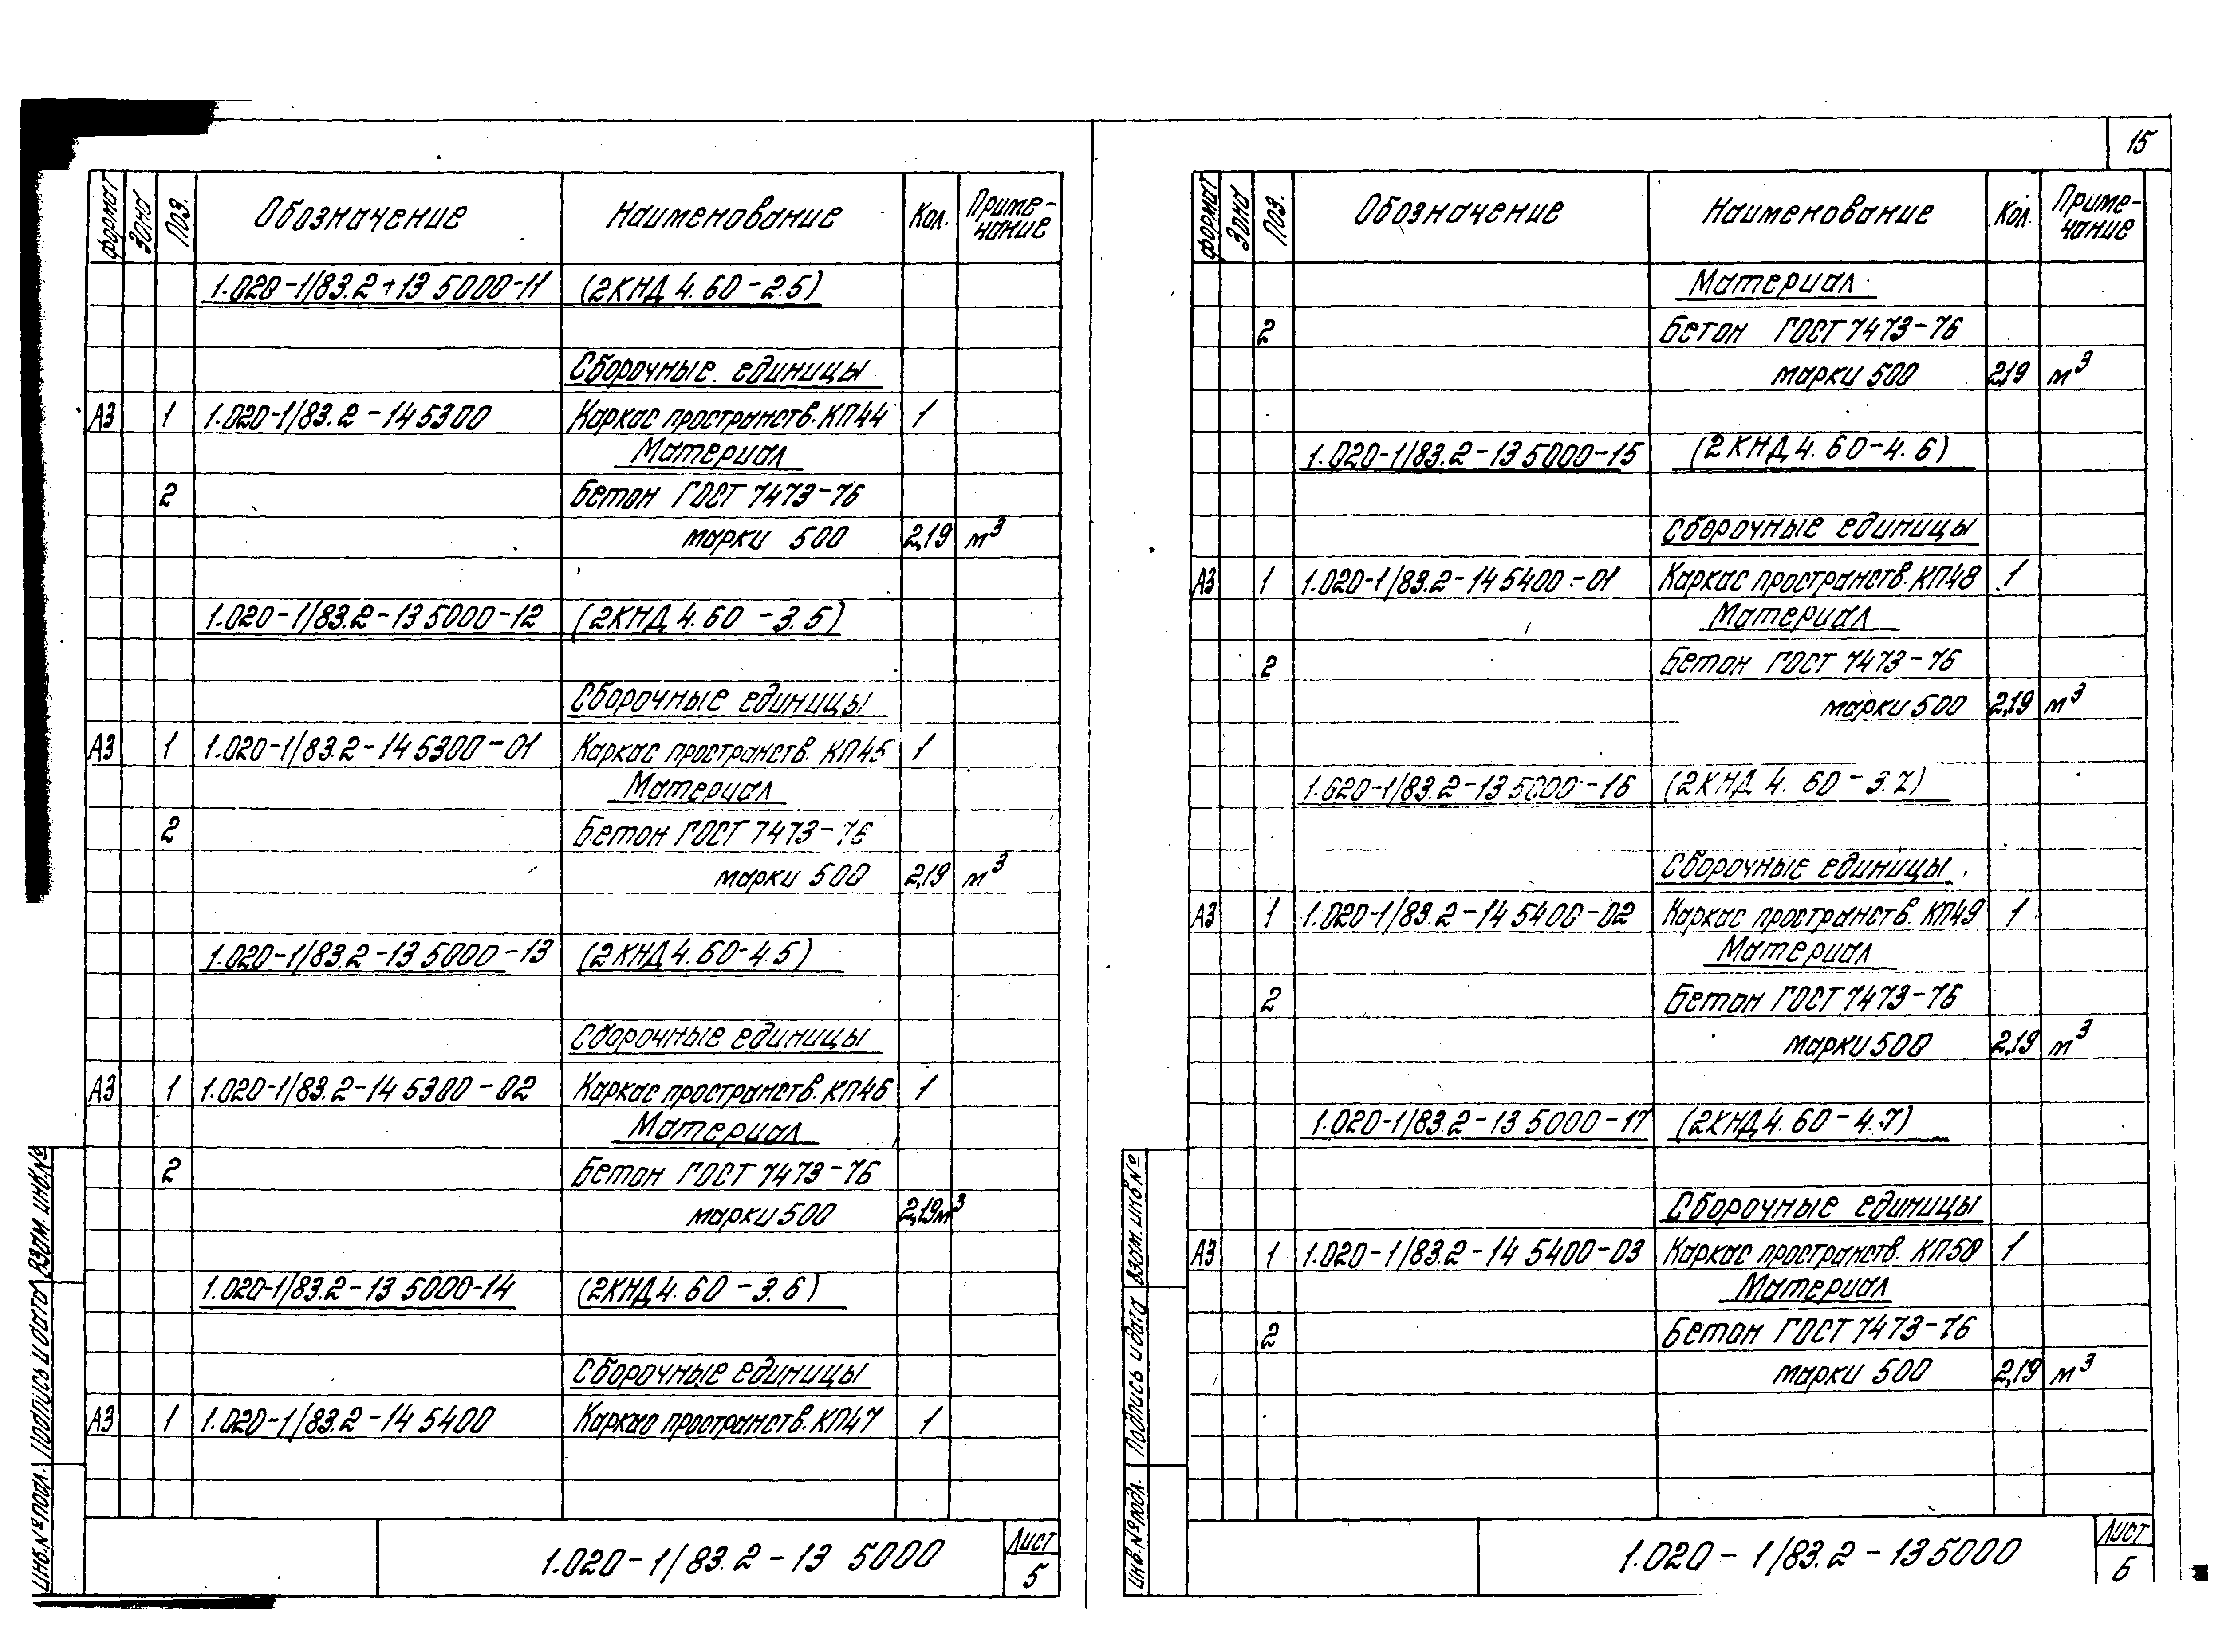 15
Формат Зона Поз. Обозначение Наименование Кол. Приме-
чание
1.020-1/83.2-13 5000-11 (2КНД 4.60-2.5)
Сборочные единицы
А3 1 1.020-1/83.2-14 5300 Каркас пространств. КП44 1
Материал
2 Бетон ГОСТ 7473-76
марки 500 2,19 м³
1.020-1/83.2-13 5000-12 (2КНД 4.60-3.5)
Сборочные единицы
А3 1 1.020-1/83.2-14 5300-01 Каркас пространств. КП45 1
Материал
2 Бетон ГОСТ 7473-76
марки 500 2,19 м³
1.020-1/83.2-13 5000-13 (2КНД 4.60-4.5)
Сборочные единицы
А3 1 1.020-1/83.2-14 5300-02 Каркас пространств. КП46 1
Материал
2 Бетон ГОСТ 7473-76
марки 500 2,19 м³
1.020-1/83.2-13 5000-14 (2КНД 4.60-3.6)
Сборочные единицы
А3 1 1.020-1/83.2-14 5400 Каркас пространств. КП47 1
Инв.№ подл. Подпись и дата Взам. инв.№
1.020-1/83.2-13 5000
Лист
5
Формат Зона Поз. Обозначение Наименование Кол. Приме-
чание
Материал
2 Бетон ГОСТ 7473-76
марки 500 2,19 м³
1.020-1/83.2-13 5000-15 (2КНД 4.60-4.6)
Сборочные единицы
А3 1 1.020-1/83.2-14 5400-01 Каркас пространств. КП48 1
Материал
2 Бетон ГОСТ 7473-76
марки 500 2,19 м³
1.020-1/83.2-13 5000-16 (2КНД 4.60-3.7)
Сборочные единицы
А3 1 1.020-1/83.2-14 5400-02 Каркас пространств. КП49 1
Материал
2 Бетон ГОСТ 7473-76
марки 500 2,19 м³
1.020-1/83.2-13 5000-17 (2КНД 4.60-4.7)
Сборочные единицы
А3 1 1.020-1/83.2-14 5400-03 Каркас пространств. КП50 1
Материал
2 Бетон ГОСТ 7473-76
марки 500 2,19 м³
Инв.№ подл. Подпись и дата Взам. инв.№
1.020-1/83.2-13 5000
Лист
6